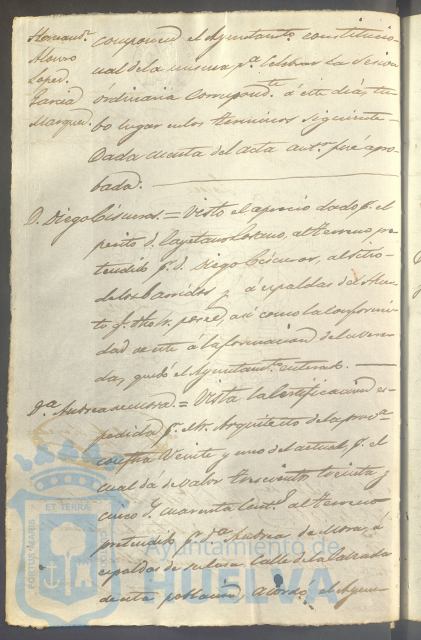 Hernand.
Alonso
Lopez.
Garcia
Marquez.
componen el Ayuntamto. constitucio-
nal de la misma pa. celebrar la Sesion
ordinaria correspondte. á este dia, tu-
bo lugar en los terminos siguientes
Dada cuenta del acta antr. fué apro-
bada.
D. Diego Cisneros. = Visto el aprecio dado pr. el
perito d. Cayetano Lozano, al terreno pre-
tendido pr. d. Diego Cisneros, al sitio
de los y á espaldas del Huer-
to qe. posee, asi como la conformi-
dad de este á la formacion de la vere-
da, quedó el Ayuntamto. enterado.
Da. Andrea de Mora. = Vista la Certificacion es-
pedida pr. el Arquitecto de la prova.
con fha veinte y uno del actual pr. el
cual dá de valor trescientos treinta y
cinco rs. cuarenta cents. al terreno
pretendido pr. Da. Andrea de Mora, á
espaldas de su casa Calle de la Calzada
de esta poblacion, acordó el Ayun-
ET TERRAE
PORTUS MARIS
Ayuntamiento de
HUELVA